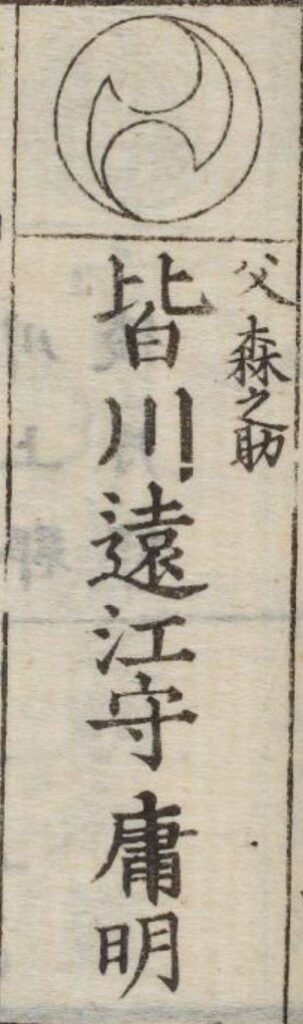 父森之助
皆川遠江守庸明